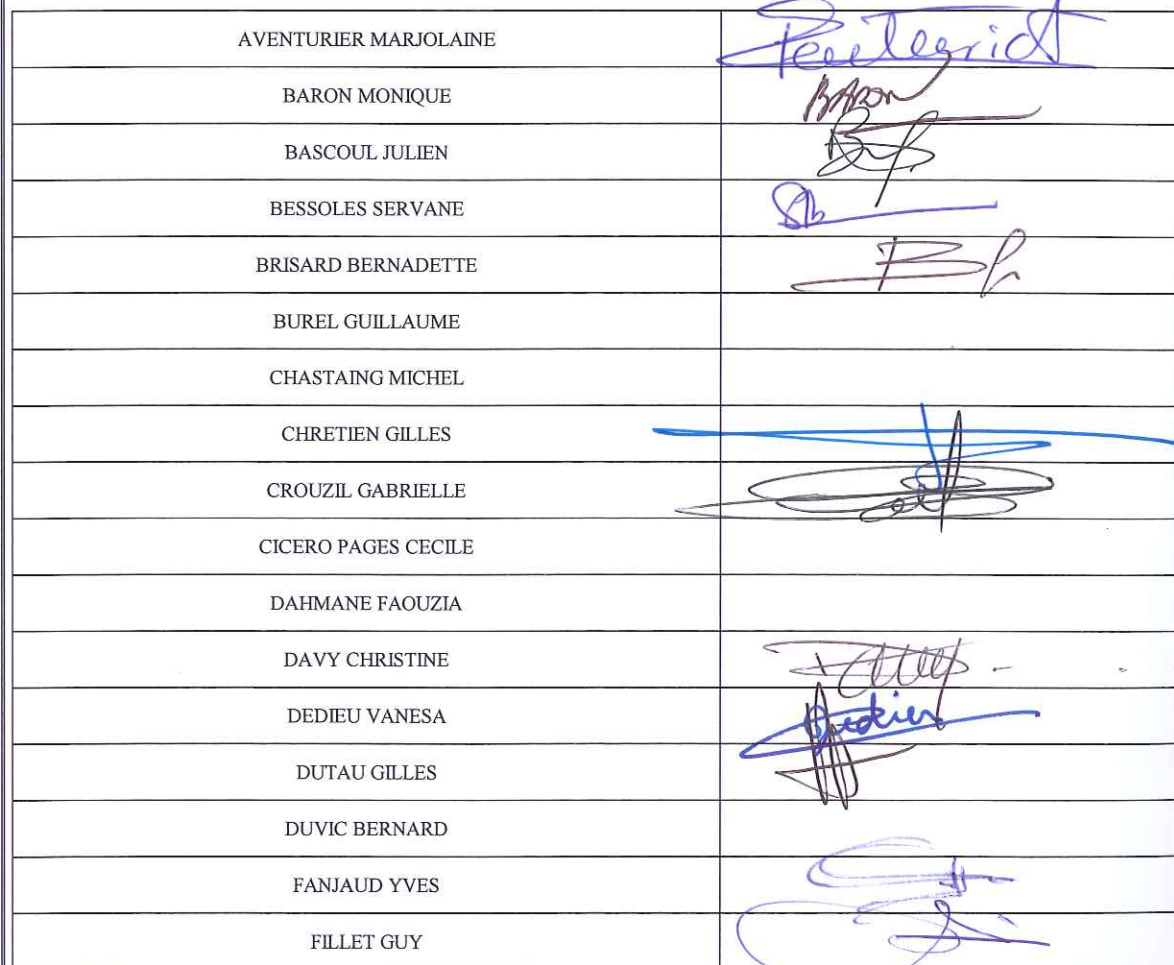 AVENTURIER MARJOLAINE
BARON MONIQUE BARON
BASCOUL JULIEN
BESSOLES SERVANE
BRISARD BERNADETTE
BUREL GUILLAUME
CHASTAING MICHEL
CHRETIEN GILLES
CROUZIL GABRIELLE
CICERO PAGES CECILE
DAHMANE FAOUZIA
DAVY CHRISTINE
DEDIEU VANESA
DUTAU GILLES
DUVIC BERNARD
FANJAUD YVES
FILLET GUY